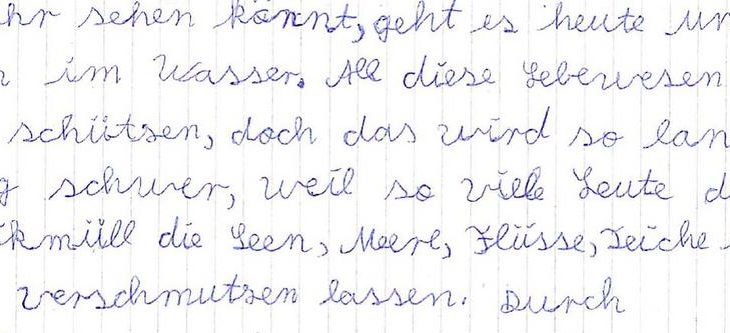 hr sehen könnt, geht es heute u
im Wasser. All diese Lebewesen
schützen, doch das wird so lan
g schwer, weil so viele Leute d
ikmüll die Seen, Meere, Flüsse, Teiche
verschmutzen lassen. Durch